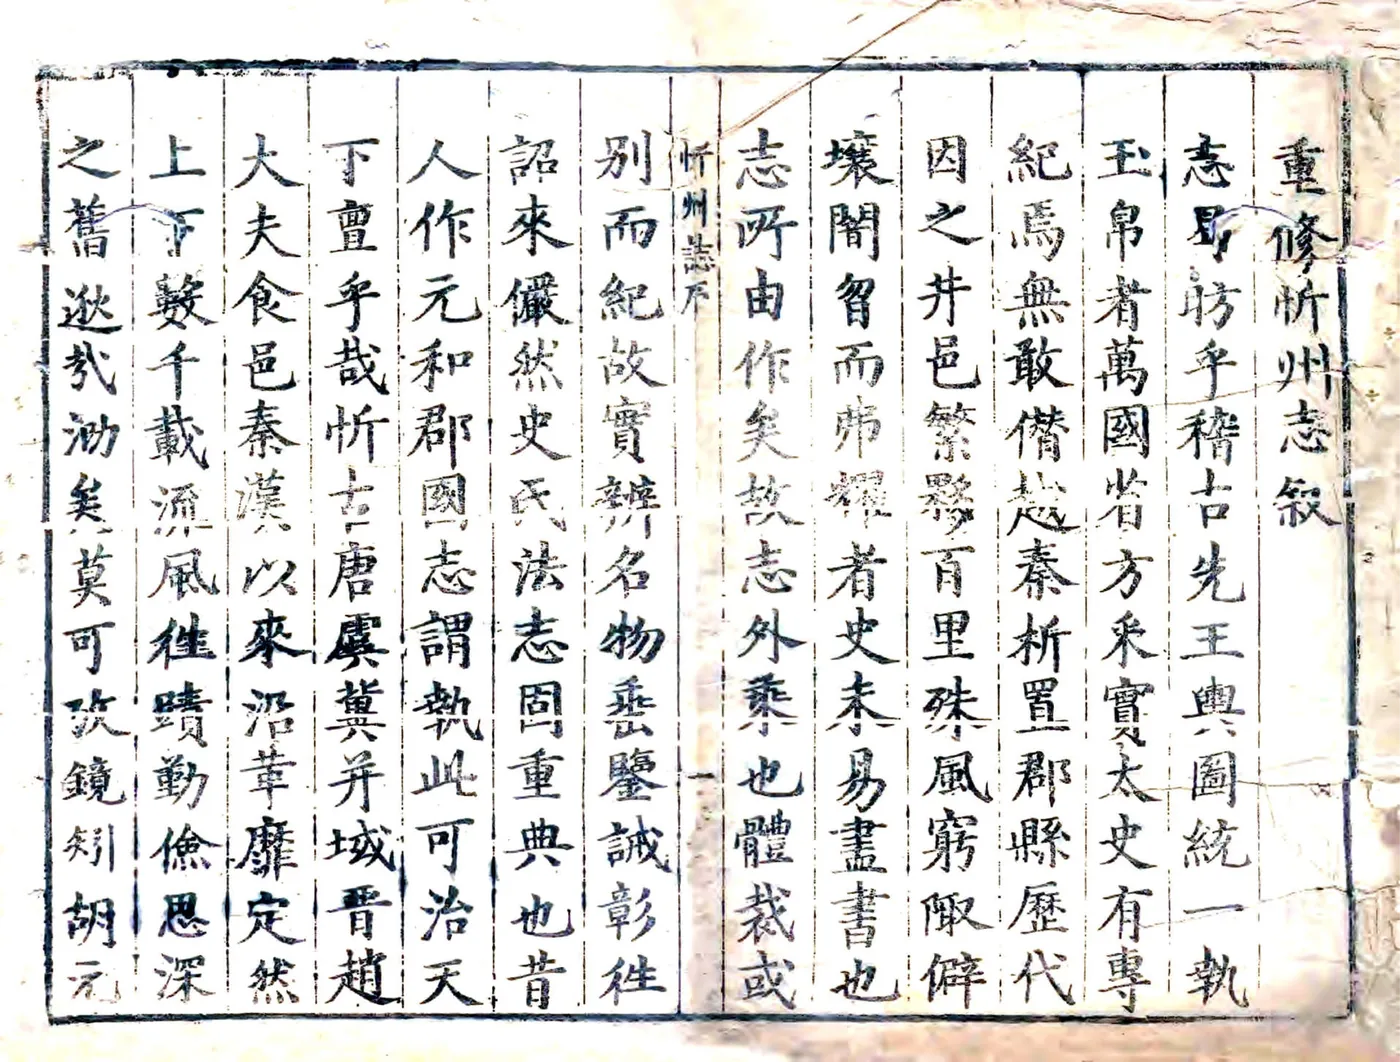 重修忻州志叙
志曷昉乎稽古先王輿圖統一執
玉帛者萬國省方采實太史有專
紀焉無敢僭越秦析置郡縣歷代
因之井邑繁夥百里殊風窮陬僻
壤闇曶而弗耀者史未易盡書也
志所由作矣故志外乘也體裁或
忻州誌序
一
別而紀故實辨名物垂鑒誡彰徃
詔來儼然史氏法志固重典也昔
人作元和郡國志謂執此可治天
下亶乎哉忻古唐虞冀并域晋趙
大夫食邑秦漢以來沿革靡定然
上下數千載流風徃蹟勤儉思深
之舊逖哉泐矣莫可攷鏡矧胡元